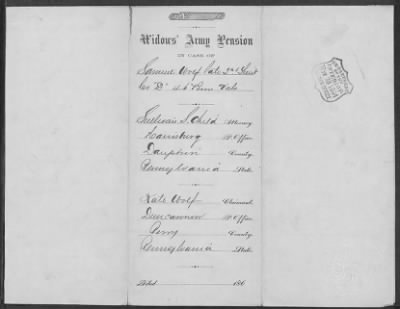 Widows' Army Pension
IN CASE OF
Samuel Wolf late 2nd Lieut
Co "D" 46 Penn Vols
Sullivan S. Child Attorney
Harrisburg P. Office
Dauphin County
Pennsylvania State
Kate Wolf Claimant
Duncannon P. Office
Perry County
Pennsylvania State
Filed 186